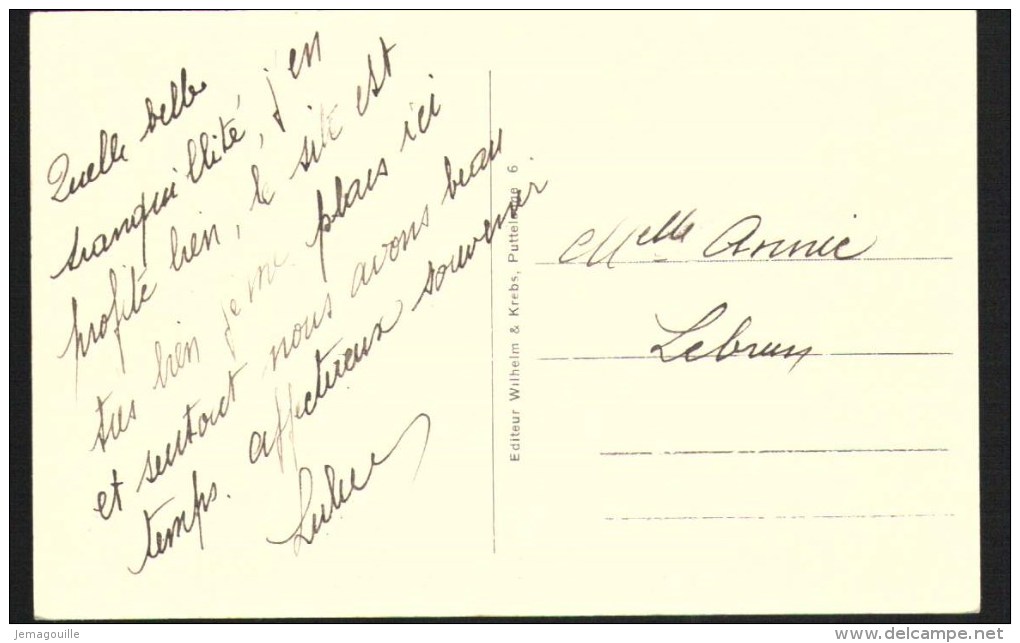 Quelle belle
tranquillité, j'en
profite bien, le site est
très bien je me plais ici
et surtout nous avons beau
temps. affectueux souvenir
Lulu
Editeur Wilhelm & Krebs, Puttelange 6
Melle Annie
Lebrun
Jemagouille
www.delcampe.net